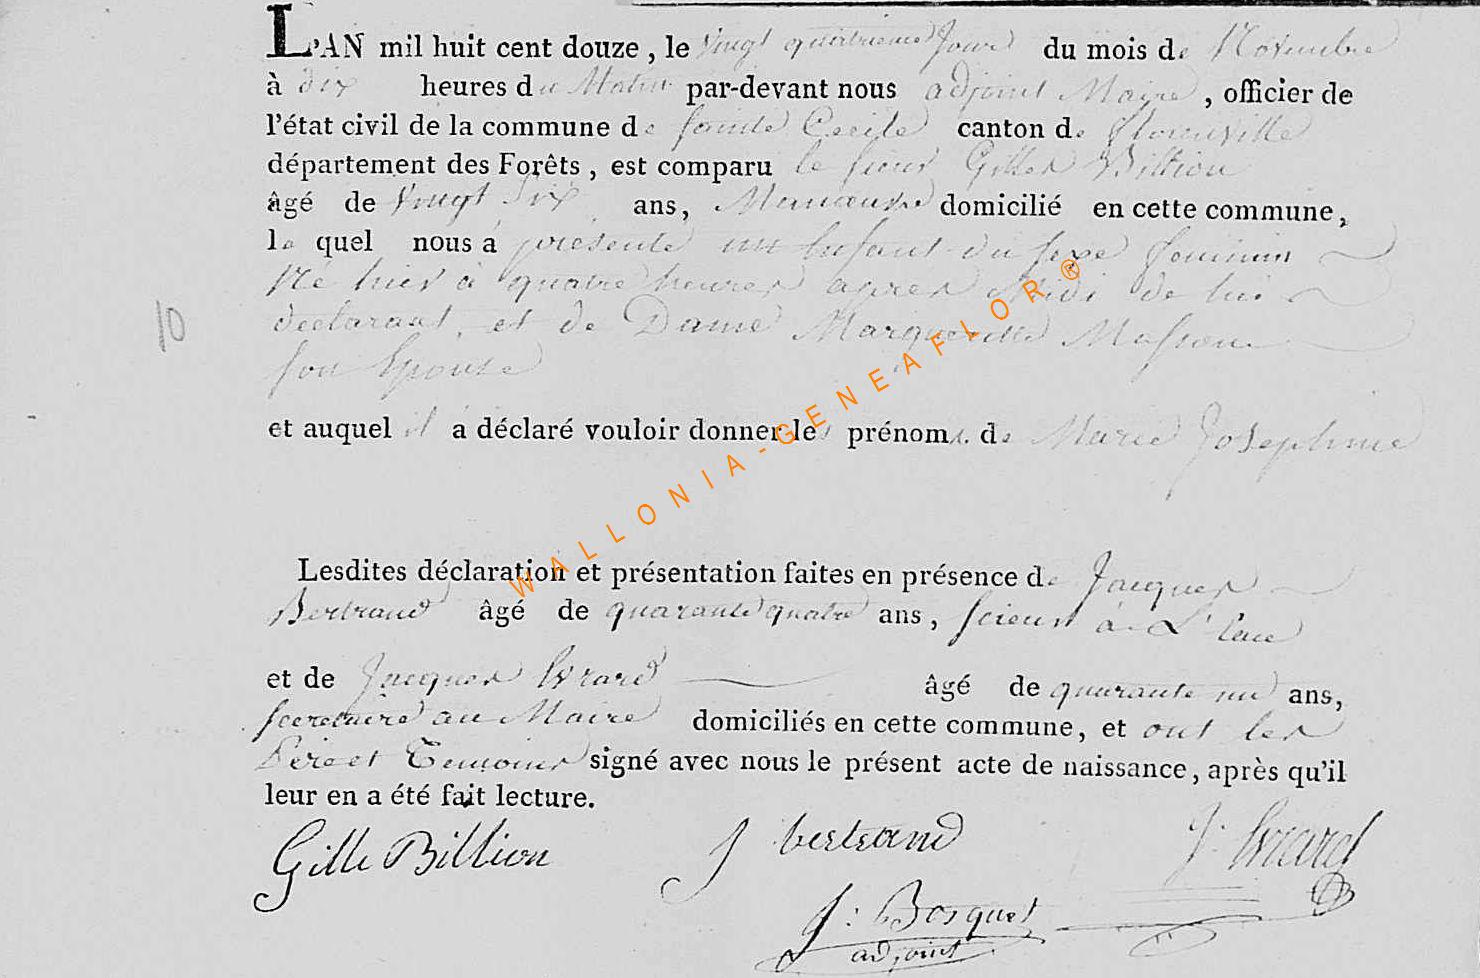 L'AN mil huit cent douze, le vingt quatrieme Jour du mois de Novembre
à dix heures du Matin par-devant nous adjoint Maire, officier de
l'état civil de la commune de sainte Cecile canton de florenville
département des Forêts, est comparu le sieur Gilles Billion
âgé de vingt six ans, Manœuvre domicilié en cette commune,
le quel nous a presenté un Enfant du sexe feminin
Né hier à quatre heures apres Midi de lui
declarant, et de Dame Margueritte Masson
son Epouse
10
et auquel il a déclaré vouloir donner les prénoms de Marie Josephine
Lesdites déclaration et présentation faites en présence de Jacques
Bertrand âgé de quarante quatre ans, scieur à L'Eau
et de Jacques Evrard âgé de quarante un ans,
secretaire au Maire domiciliés en cette commune, et ont les
Père et Temoins signé avec nous le présent acte de naissance, après qu'il
leur en a été fait lecture.
Gille Billion J bertrand J. Evrard
J: Bosquet
adjoint
WALLONIA-GENEAFLOR®